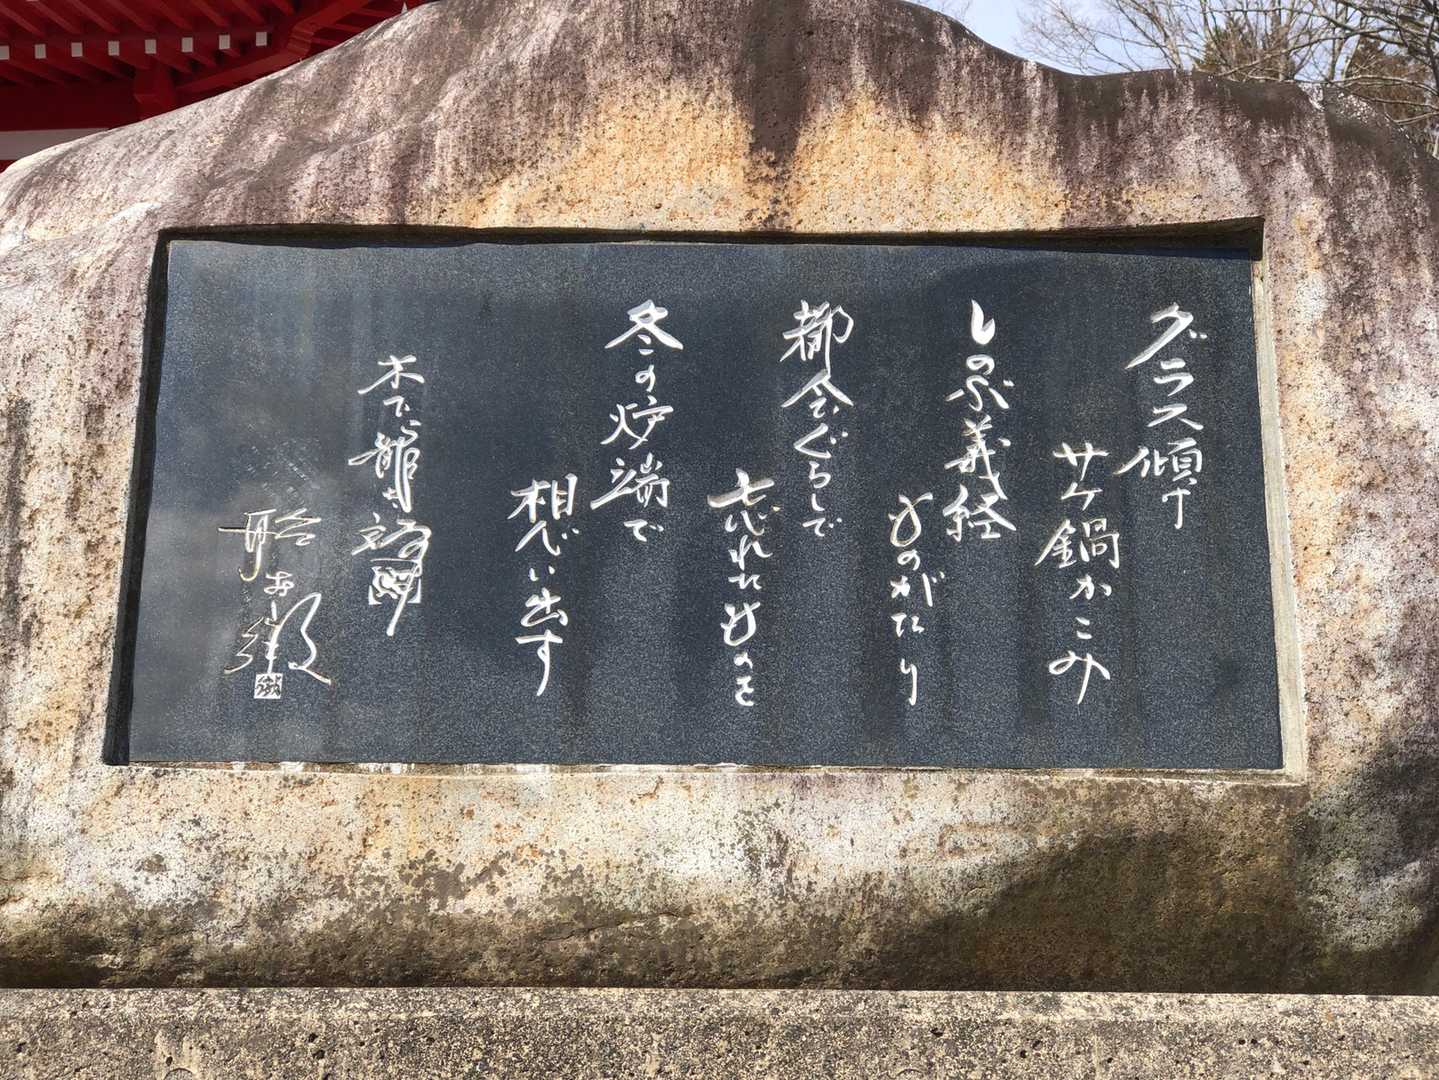 グラス傾け
サケ鍋かこみ
しのぶ義経
ものがたり
都会ぐらしで
忘れたものを
冬の炉端で
想い出す
木下龍太郎 詞
船お